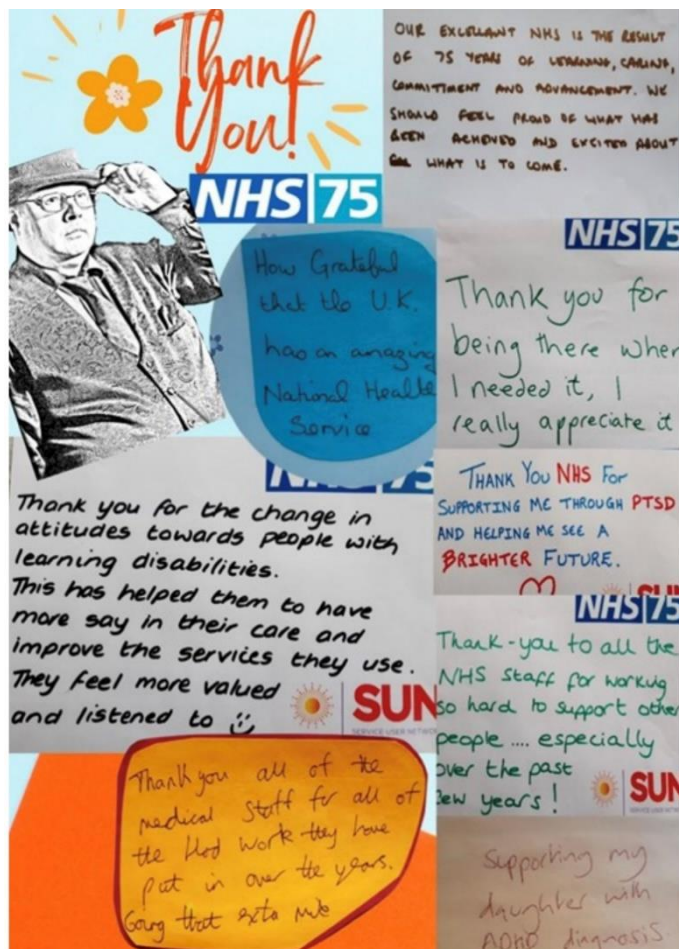 Thank
You!
NHS 75
OUR EXCELLANT NHS IS THE RESULT
OF 75 YEARS OF LEARNING, CARING,
COMMITTMENT AND ADVANCEMENT. WE
SHOULD FEEL PROUD OF WHAT HAS
BEEN ACHEVED AND EXCITED ABOUT
WHAT IS TO COME.
How Grateful
that the U.K.
has an amazing
National Health
Service
NHS 75
Thank you for
being there when
I needed it, I
really appreciate it
NHS 75
Thank you for the change in
attitudes towards people with
learning disabilities.
This has helped them to have
more say in their care and
improve the services they use.
They feel more valued
and listened to
SUN
SERVICE USER NETWORK
THANK YOU NHS FOR
SUPPORTING ME THROUGH PTSD
AND HELPING ME SEE A
BRIGHTER FUTURE.
SUN
NHS 75
Thank-you to all the
NHS Staff for working
so hard to support other
people .... especially
over the past
few years!
SUN
SERVICE USER NETWO
Thank you all of the
medical Staff for all of
the Hard work they have
put in over the years.
Going that exta mile
Supporting my
daughter with
ADHD diagnosis